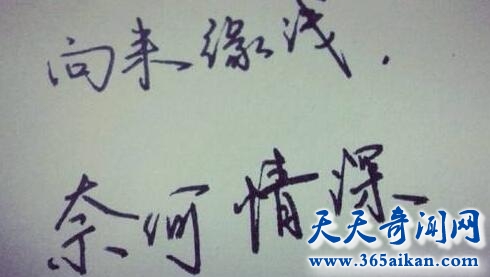 向来缘浅,
奈何情深
天天奇闻网
www.365aikan.com